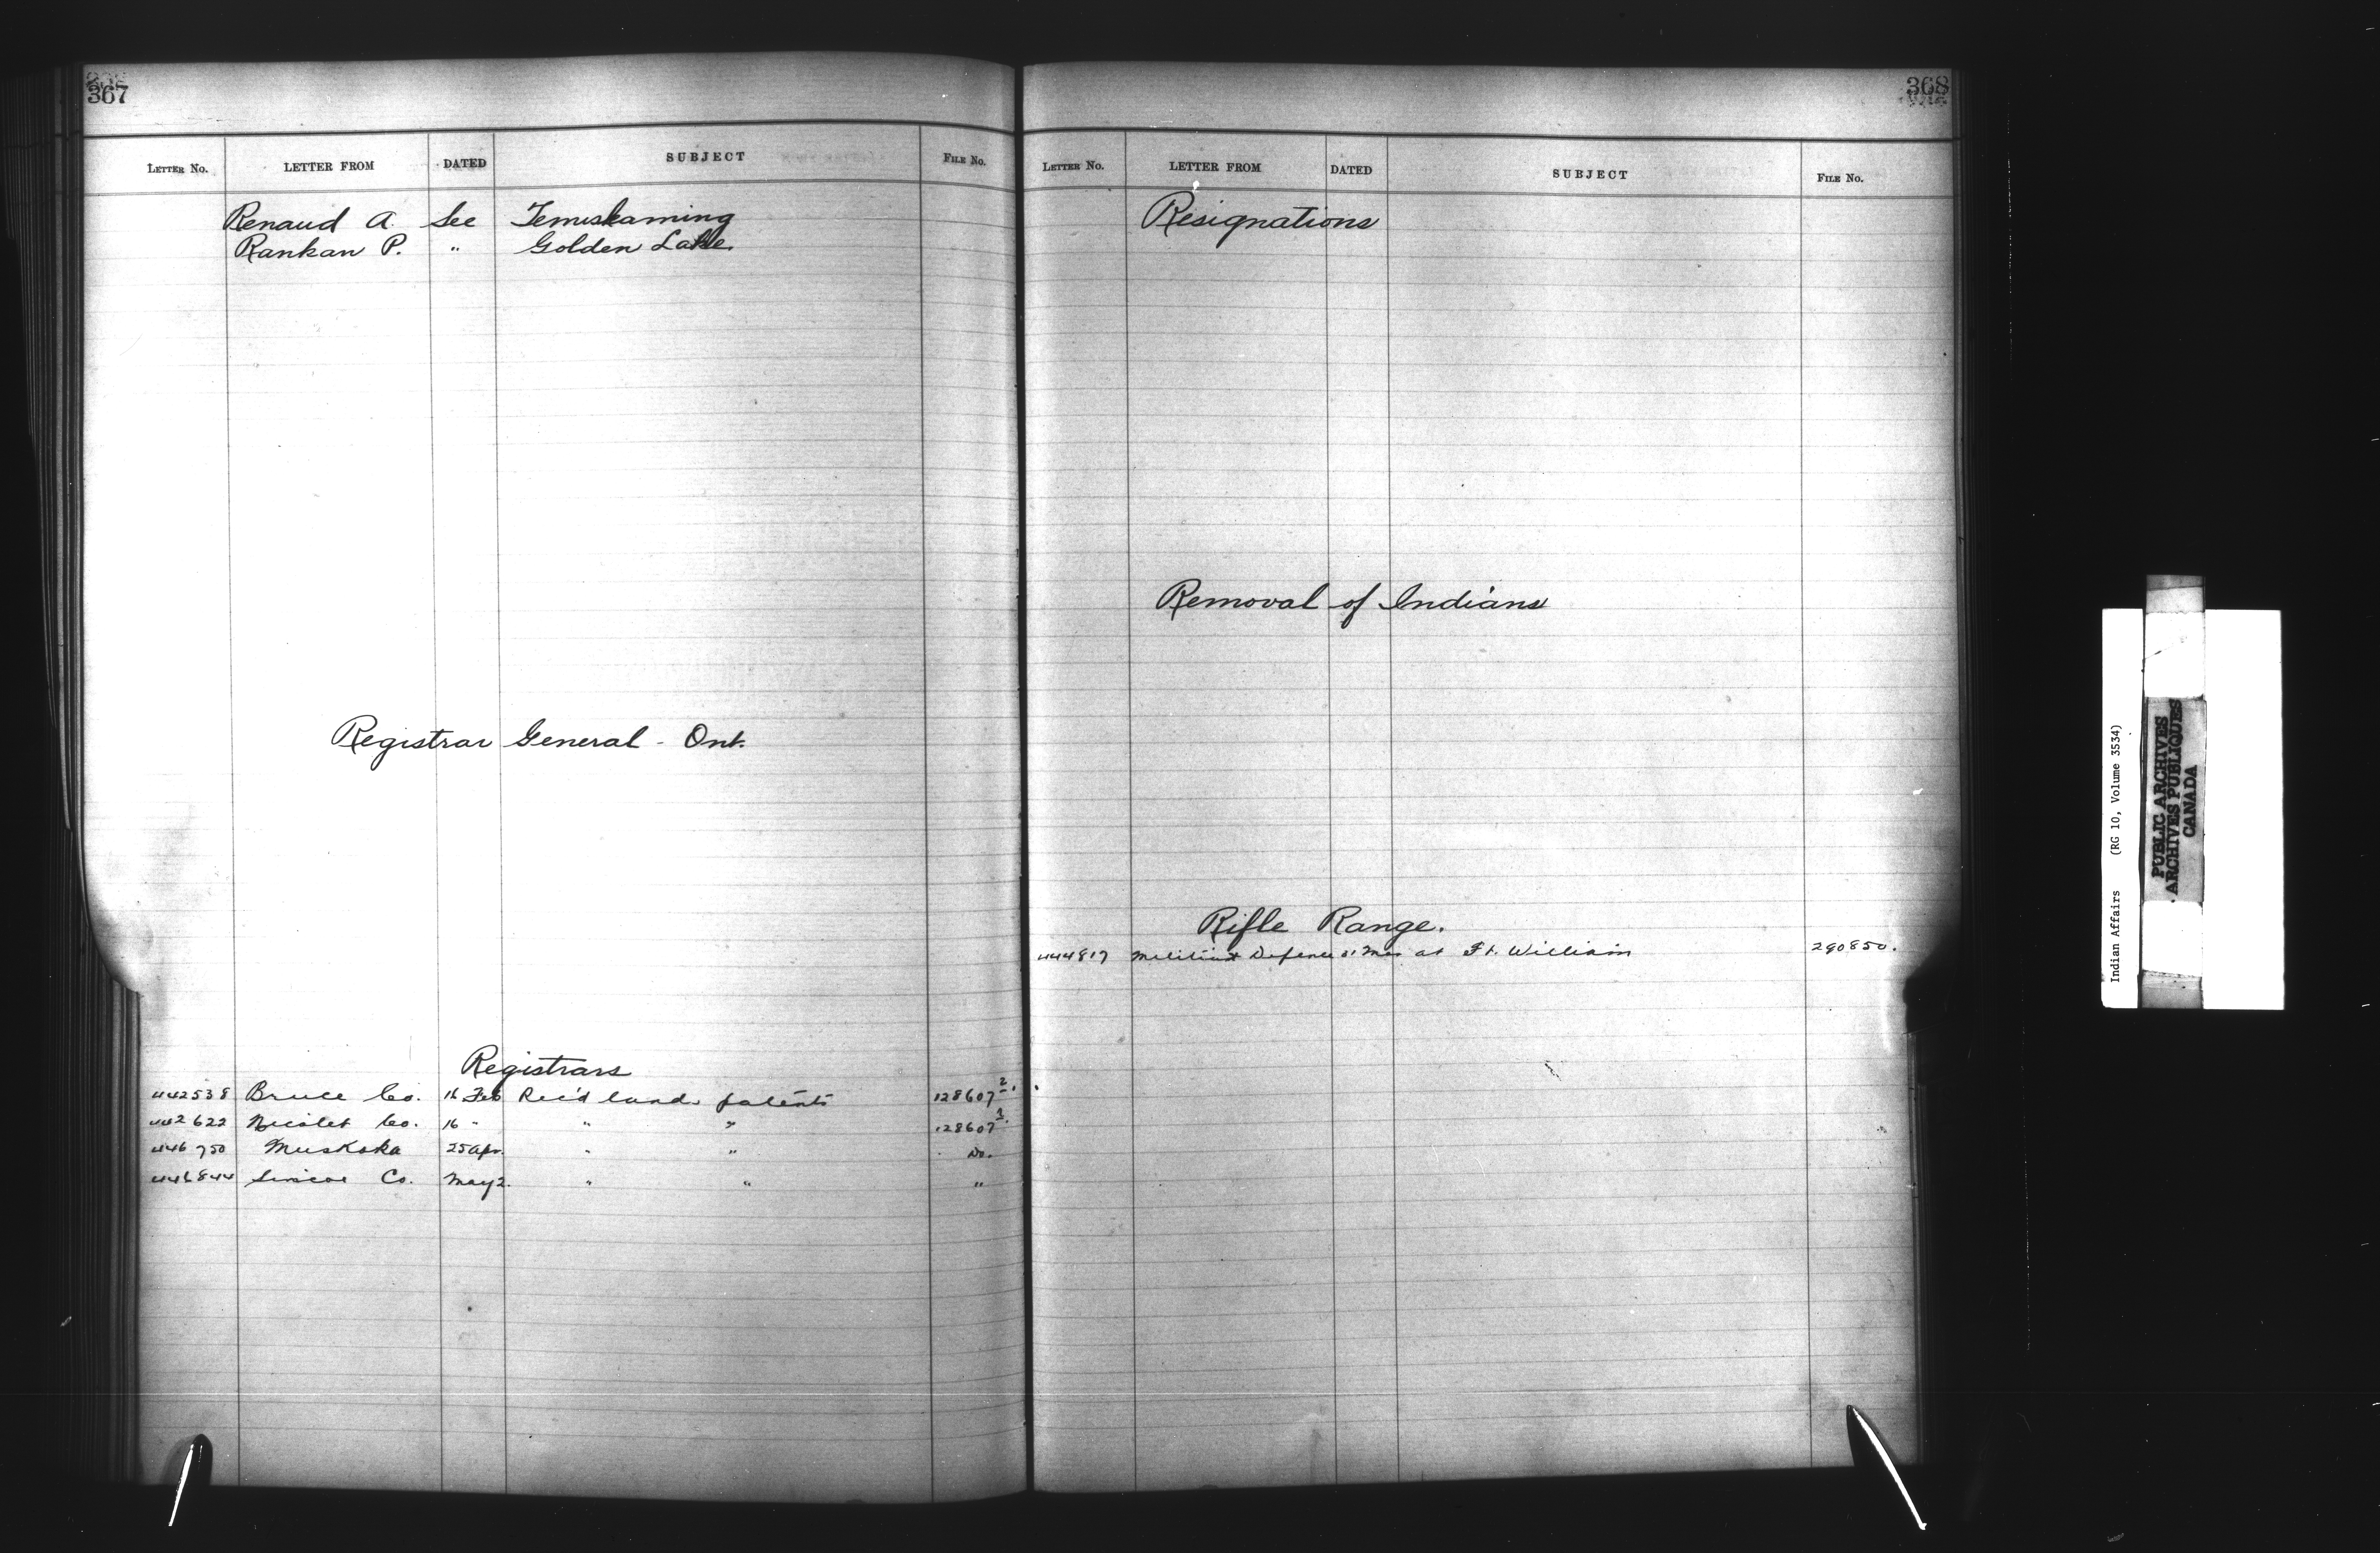 367
LETTER No. LETTER FROM DATED SUBJECT FILE No.
Renaud A. See Temiskaming
Rankan P. " Golden Lake
Registrar General - Ont.
Registrars
442538 Bruce Co. 16 Feb Rec'd land patents 128607²
442622 Nicolet Co. 16 " " " 128607
446750 Muskoka 25 Apr. " " Do.
446844 Simcoe Co. May 2. " " "
368
LETTER No. LETTER FROM DATED SUBJECT FILE No.
Resignations
Removal of Indians
Rifle Range.
444817 Militia & Defence Mar at Ft. William 290850.
Indian Affairs (RG 10, Volume 3534)
PUBLIC ARCHIVES
ARCHIVES PUBLIQUES
CANADA